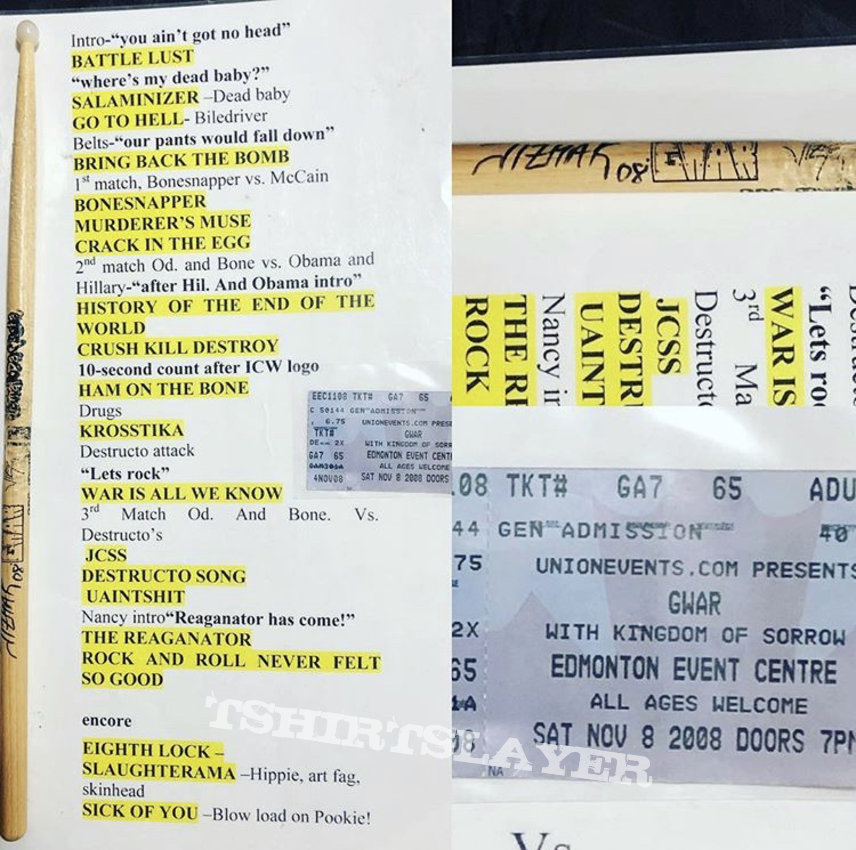 Intro-“you ain’t got no head”
BATTLE LUST
“where’s my dead baby?”
SALAMINIZER –Dead baby
GO TO HELL- Biledriver
Belts-“our pants would fall down”
BRING BACK THE BOMB
1st match, Bonesnapper vs. McCain
BONESNAPPER
MURDERER’S MUSE
CRACK IN THE EGG
2nd match Od. and Bone vs. Obama and
Hillary-“after Hil. And Obama intro”
HISTORY OF THE END OF THE
WORLD
CRUSH KILL DESTROY
10-second count after ICW logo
HAM ON THE BONE
Drugs
KROSSTIKA
Destructo attack
“Lets rock”
WAR IS ALL WE KNOW
3rd Match Od. And Bone. Vs.
Destructo’s
JCSS
DESTRUCTO SONG
UAINTSHIT
Nancy intro“Reaganator has come!”
THE REAGANATOR
ROCK AND ROLL NEVER FELT
SO GOOD
encore
EIGHTH LOCK –
SLAUGHTERAMA –Hippie, art fag,
skinhead
SICK OF YOU –Blow load on Pookie!
EEC1108 TKT# GA7 65
C 50144 GEN ADMISSION
6.75 UNIONEVENTS.COM PRESE
TKT# GWAR
2X WITH KINGDOM OF SORR
GA7 65 EDMONTON EVENT CENT
ALL AGES WELCOME
4NOV08 SAT NOV 8 2008 DOORS
JIZMAK 08 GWAR
“Lets ro
WAR IS
3rd Ma
Destructo
JCSS
DESTR
UAINT
Nancy in
THE RE
ROCK
.08 TKT# GA7 65 ADU
44 GEN ADMISSION 40
75 UNIONEVENTS.COM PRESENTS
GWAR
2X WITH KINGDOM OF SORROW
65 EDMONTON EVENT CENTRE
1A ALL AGES WELCOME
08 SAT NOV 8 2008 DOORS 7PM
NA
Vs
TSHIRTSLAYER